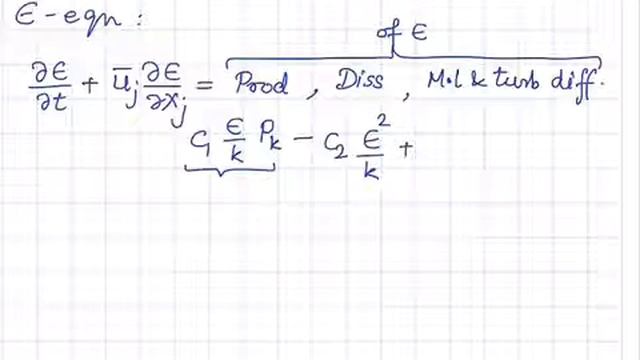 ϵ-eqn :
of ϵ
∂ϵ/∂t + ū_j ∂ϵ/∂x_j = Prod , Diss , Mol & turb diff.
C₁ ϵ/k P_k − C₂ ϵ²/k +